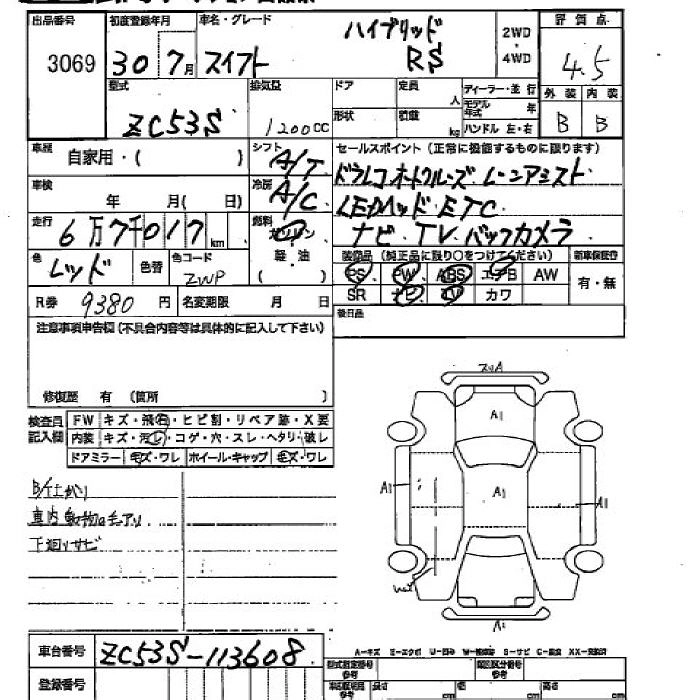 出品番号 初度登録年月 車名・グレード ハイブリッド 2WD 評価点
3069 30 7月 スイフト RS ・ 4WD 4.5
型式 ZC53S 排気量 1200cc ドア 定員 人 ディーラー・並行 外装 内装
形状 積載 kg モデル年式 年 ハンドル 左・右 B B
車歴 自家用・( ) シフト A/T セールスポイント (正常に機能するものに限ります)
車検 年 月( 日) 冷房 A/C ドラレコ オートクルーズ レーンアシスト
LEDヘッド ETC
走行 6万7千017km 燃料 ガソリン ナビ TV バックカメラ
色 レッド 色替 色コード ZWP 軽・油 ( ) 装備品 (純正品に限り○をつけてください) 新車保証書
PS PW ABS エアB AW 有・無
R券 9380円 名変期限 月 日 SR ナビ TV カワ
注意事項申告欄(不具合内容等は具体的に記入して下さい) 後日品
修復歴 有 (箇所 )
検査員記入欄 FW キズ・飛石・ヒビ割・リペア跡・X要
内装 キズ・汚レ・コゲ・穴・スレ・ヘタリ・破レ
ドアミラー キズ・ワレ ホイール・キャップ キズ・ワレ
B/仕上がり
車内動物の毛アリ
下廻りサビ
A1
A1 A1 A1
車台番号 ZC53S-113608
A-キズ E-エクボ U-凹み W-補修跡 S-サビ C-腐食 XX-交換済
登録番号 型式指定番号 参考 類別区分番号 参考
長さ cm 幅 cm 高さ cm